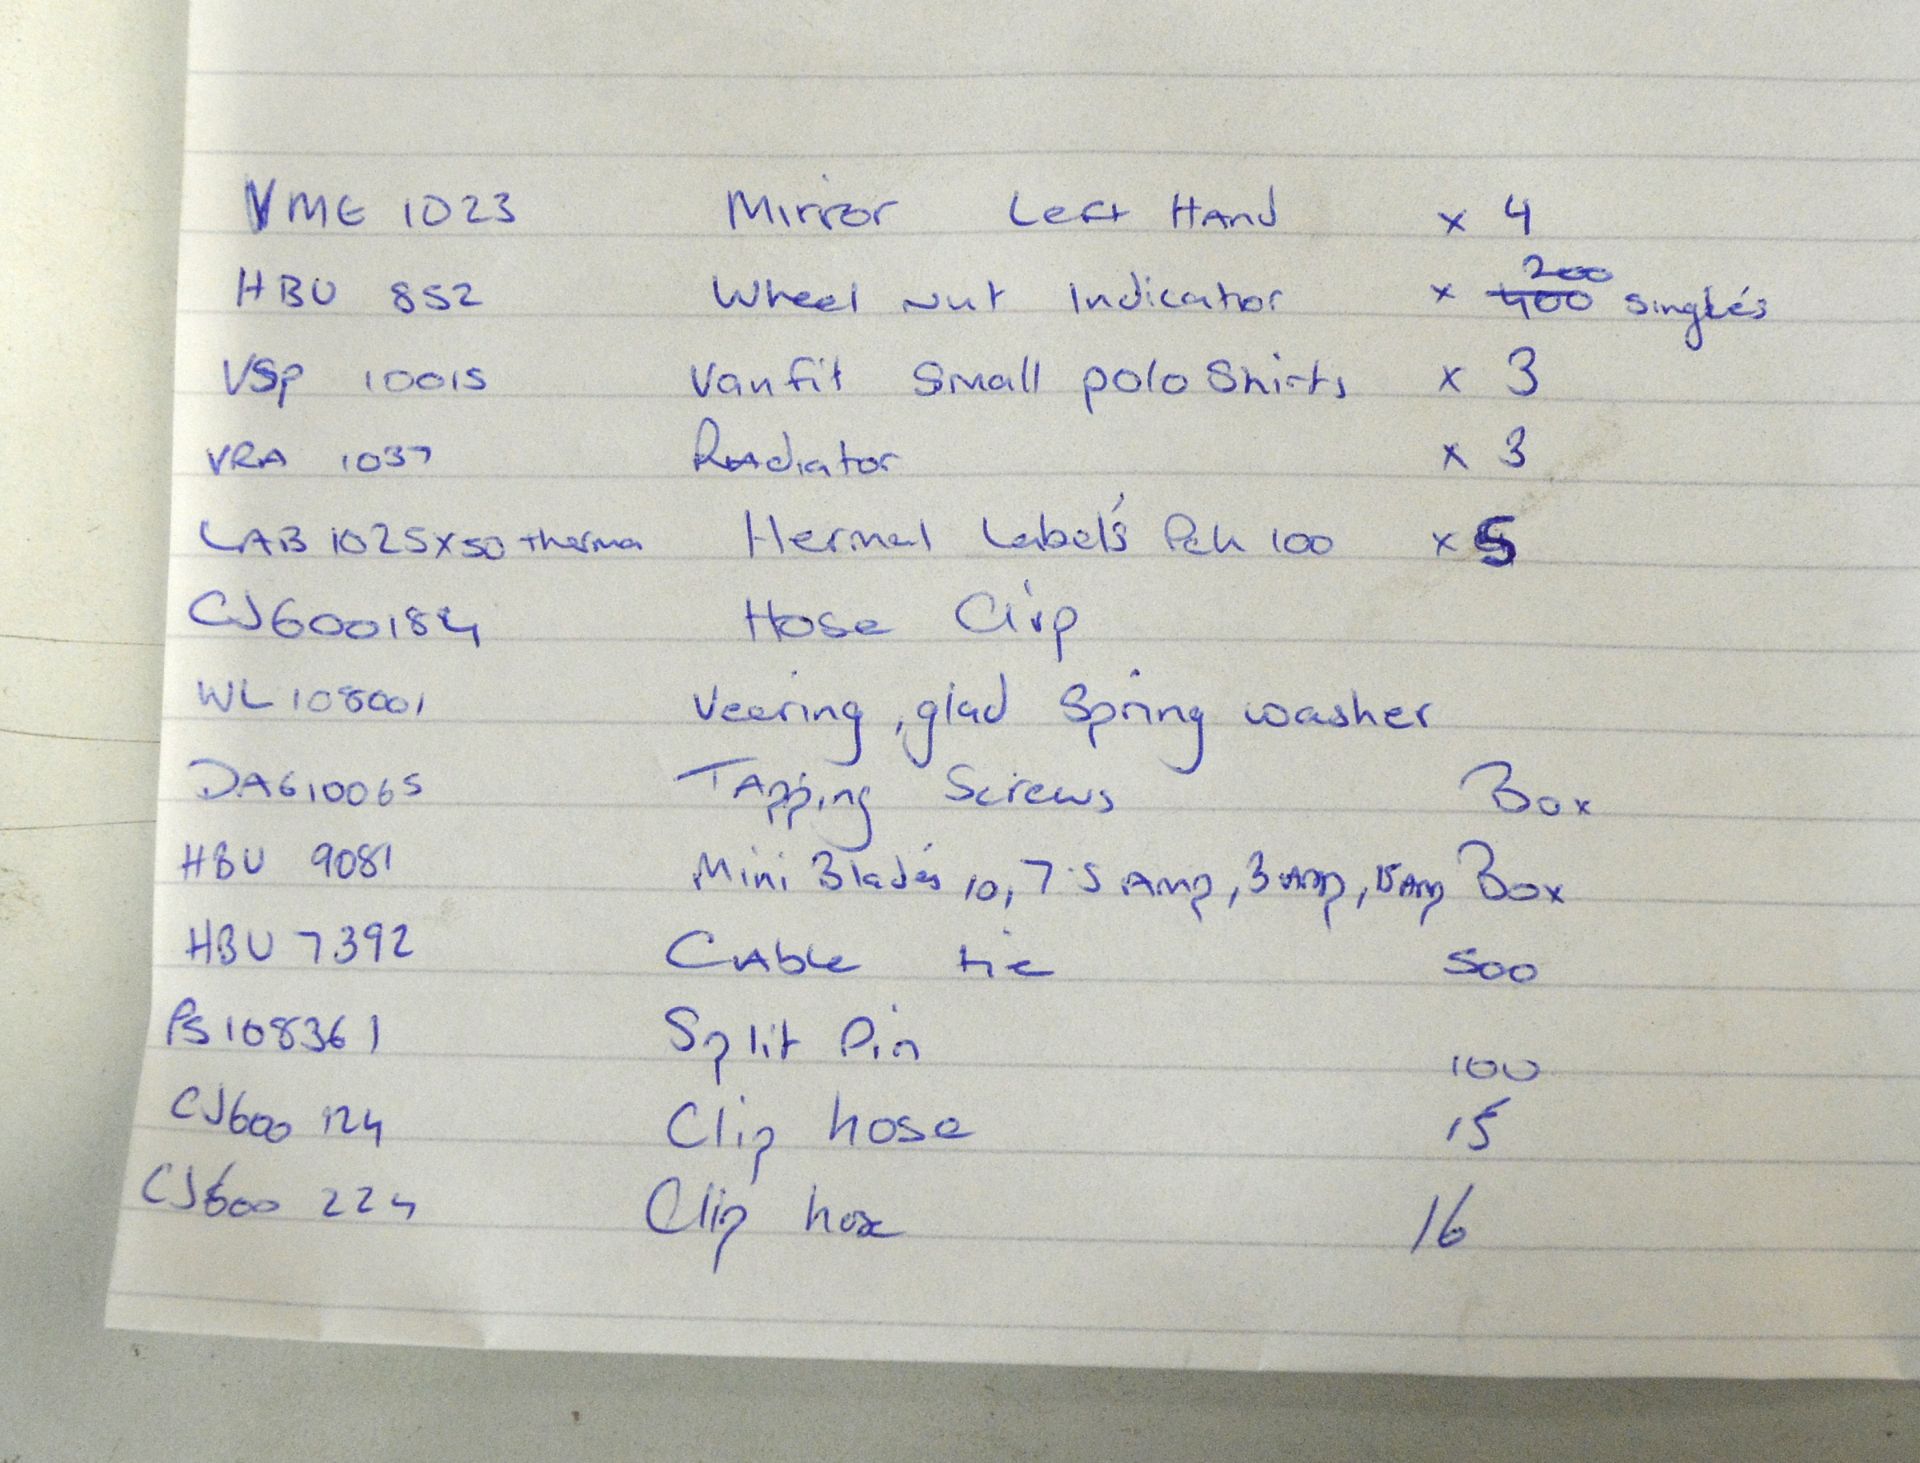 VME 1023 Mirror Left Hand x 4
HBU 852 Wheel Nut Indicator x 200 400 Singles
VSP 10015 Vanfit Small polo Shirts x 3
VRA 1037 Radiator x 3
LAB 1025x50 therma Hermal Label's Pck 100 x 5
CJ600184 Hose Clip
WL108001 Veering, glad Spring washer
DA610065 Tapping Screws Box
HBU 9081 Mini Blade's 10, 7.5 Amp, 3 Amp, 15 Amp Box
HBU 7392 Cable tie 500
PS108361 Split Pin 100
CJ600 124 Clip hose 15
CJ600 224 Clip hose 16